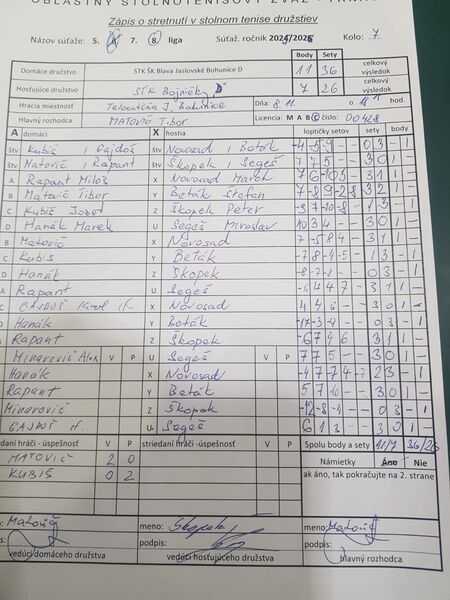 OBLASTNÝ STOLNOTENISOVÝ ZVÄZ
Zápis o stretnutí v stolnom tenise družstiev
Názov súťaže: 5. 6. 7. 8. liga Súťaž. ročník 2025 Kolo: 7
Body Sety
Domáce družstvo STK ŠK Blava Jaslovské Bohunice D 11 36 celkový výsledok
Hosťujúce družstvo STK Bojničky D 7 26 celkový výsledok
Hracia miestnosť Telocvičňa J. Bohunice Dňa: 8.11. o hod.
Hlavný rozhodca MATOVIČ TIBOR Licencia: M A B C číslo: 00428
A domáci X hostia loptičky setov sety body
štv Kubiš, Gajdoš štv Novosad, Beták -4 -5 -9 0 3 - 1
štv Matovič, Rapant štv Škopek, Segeš 7 7 5 3 0 1 -
A Rapant Miloš X Novosad Marek 3 1 1 -
B Matovič Tibor Y Beták Štefan 3 2 1 -
C Kubiš Jozef Z Škopek Peter 1 3 - 1
D Hanák Marek U Segeš Miroslav 10 3 4 3 0 1 -
B Matovič X Novosad 7 -5 8 4 3 1 1 -
C Kubiš Y Beták -7 8 -4 -5 1 3 - 1
D Hanák Z Škopek -8 -7 -8 0 3 - 1
A Rapant U Segeš -6 4 4 7 3 1 1 -
C GAJDOŠ X Novosad 4 4 6 3 0 1
D Hanák Y Beták 0 3 - 1
Rapant Z Škopek -6 7 4 6 3 1 1 -
Minarovič Alex V P U Segeš V P 7 7 5 3 0 1 -
Hanák X Novosad -4 7 7 4 2 3 - 1
Rapant Y Beták 5 7 10 3 0 1 -
Minarovič Z Škopek -12 -8 -4 0 3 - 1
GAJDOŠ U Segeš 6 1 3 3 0 1 -
striedaní hráči - úspešnosť V P striedaní hráči - úspešnosť V P Spolu body a sety 11/7 36/26
MATOVIČ 2 0 Námietky Áno Nie
KUBIŠ 0 2 ak áno, tak pokračujte na 2. strane
Matovič meno: Škopek meno: Matovič
podpis: podpis:
vedúci domáceho družstva vedúci hosťujúceho družstva hlavný rozhodca